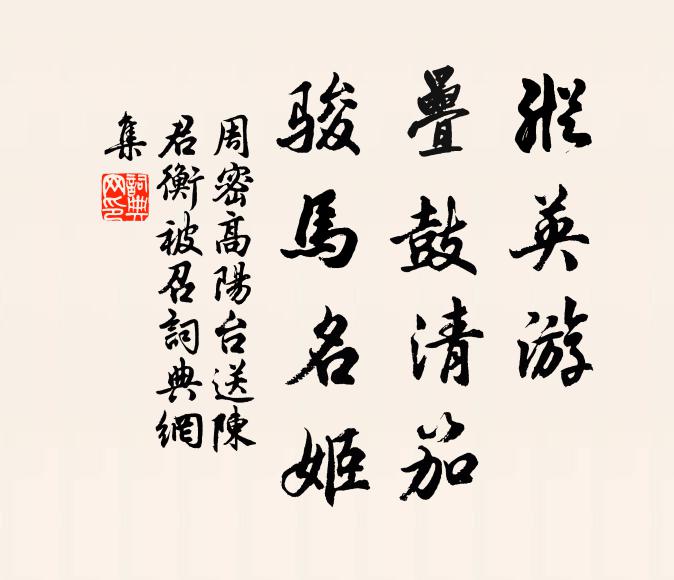 縱英游
疊鼓清笳
駿馬名姬
周密高陽台送陳
君衡被召詞典網
集
詞典
网印